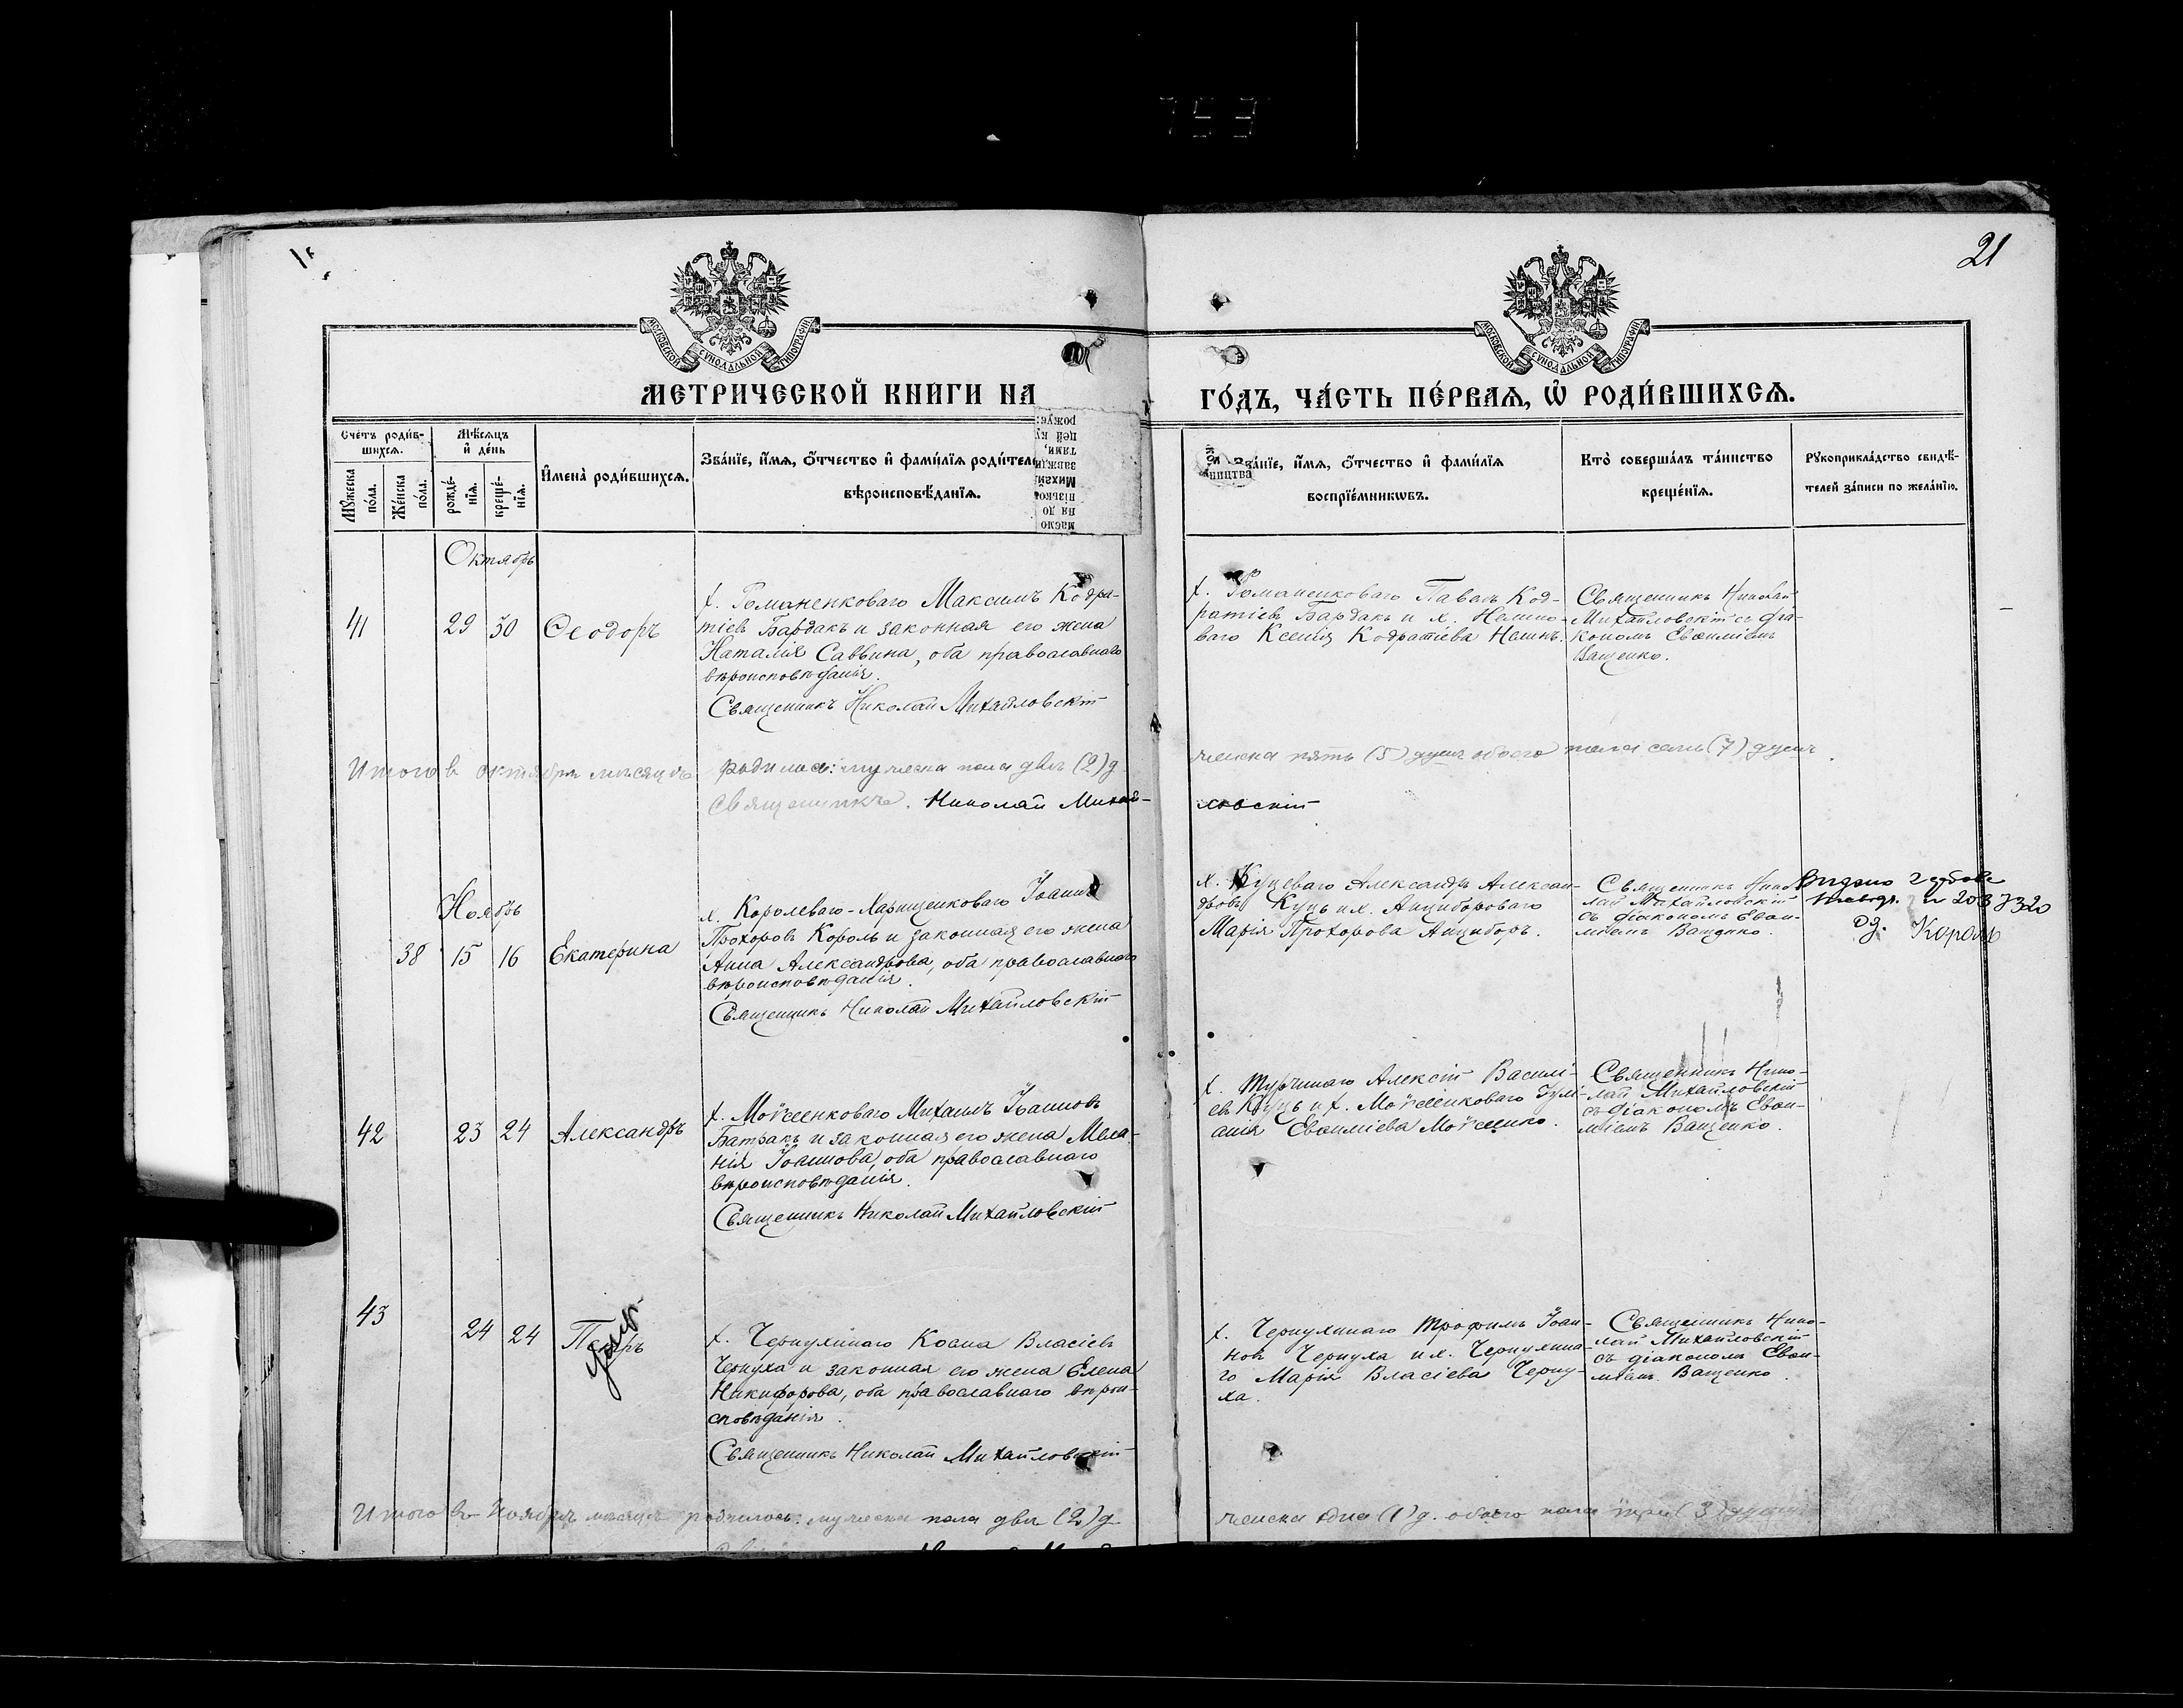 21
МОСКОВСКОЙ СѴНОДАЛЬНОЙ ТИПОГРАФІИ
МОСКОВСКОЙ СѴНОДАЛЬНОЙ ТИПОГРАФІИ
МЕТРИЧЕСКОЙ КНИГИ НА ГО́ДЪ, ЧА́СТЬ ПЕ́РВАѦ, Ѽ РОДИ́ВШИХСѦ.
Счетъ роди́в-
шихсѧ.
Мꙋ́жеска по́ла.
Же́нска по́ла.
Мѣ́сѧцъ
и҆ де́нь
рожде́-
нїѧ.
креще́-
нїѧ.
И҆мена̀ роди́вшихсѧ.
Зва́нїе, и҆́мѧ, ѻ҆́тчество и҆ фами́лїѧ родителе
вѣроисповѣ́данїѧ.
за́нїе, и҆́мѧ, ѻ҆́тчество и҆ фами́лїѧ
воспрїе́мникѡвъ.
Кто̀ соверша́лъ та́инство
креще́нїѧ.
Рꙋкоприкла́дство свидѣ́-
телей за́писи по жела́нїю.
Октябрь
41
29
30
Ѳеодоръ
х. Романенковаго Максимъ Кодра-
тіевъ Бардакъ и законная его жена
Наталія Саввина, оба православнаго
вѣроисповѣданія.
Священникъ Николай Михайловскій
х. Романенковаго Павелъ Код-
ратіевъ Бардакъ и х.
ваго Ксенія Кодратіева
Священникъ Николай
Михайловскій съ діа-
кономъ Евѳиміемъ
Ващенко.
Итого въ октябрѣ мѣсяцѣ родилось: мужеска пола двѣ (2) д. женска пять (5) душъ обоего пола семь (7) душъ.
Священникъ Николай Михай-
ловскій
Ноябрь
38
15
16
Екатерина
х. Королеваго-Харищенковаго Іоаннъ
Прохоровъ Король и законная его жена
Анна Александрова, оба православнаго
вѣроисповѣданія.
Священникъ Николай Михайловскій
х. Куцеваго Александръ Алексан-
дровъ Куцъ и х. Анциборoваго
Марія Прохорова Анциборъ.
Священникъ Нико-
лай Михайловскій
съ діакономъ Евѳи-
міемъ Ващенко.
Король
42
23
24
Александръ
х. Мойсеенковаго Михаилъ Іоанновъ
Батракъ и законная его жена Мела-
нія Іоаннова, оба православнаго
вѣроисповѣданія.
Священникъ Николай Михайловскій
х. Турчинаго Алексій Василі-
евъ Куцъ и х. Мойсеенковаго Іулі-
анія Евѳиміева Мойсеенко.
Священникъ Нико-
лай Михайловскій
съ діакономъ Евѳи-
міемъ Ващенко.
43
24
24
Петръ
х. Чернухинаго Косма Власіевъ
Чернуха и законная его жена Елена
Никифорова, оба православнаго вѣрои-
сповѣданія.
Священникъ Николай Михайловскій
х. Чернухинаго Трофимъ Іоан-
новъ Чернуха и х. Чернухина-
го Марія Власіева Черну-
ха.
Священникъ Нико-
лай Михайловскій
съ діакономъ Евѳи-
міемъ Ващенко.
Итого въ Ноябрѣ мѣсяцѣ родилось: мужеска пола двѣ (2) д женска одна (1) д. обоего пола три (3) души